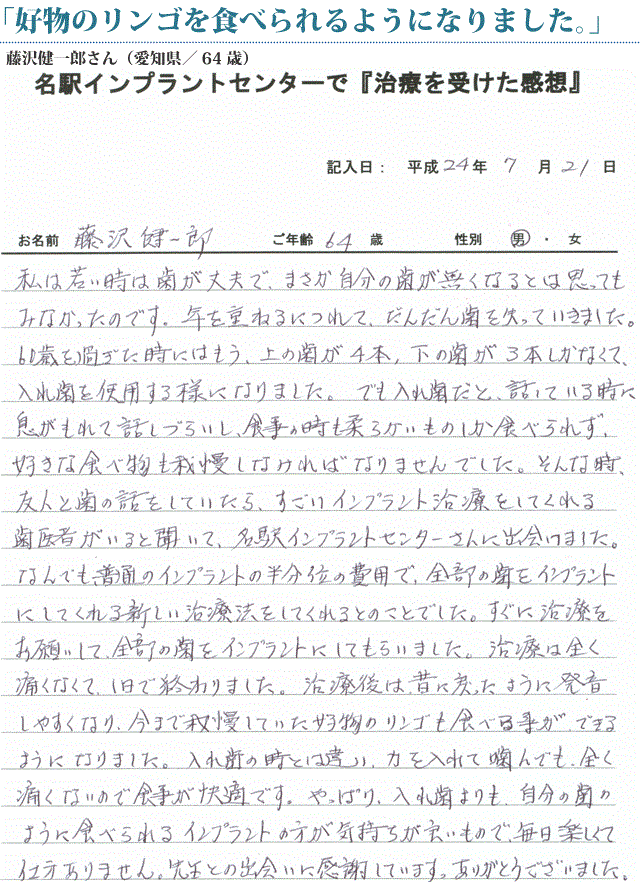 「好物のリンゴを食べられるようになりました。」
藤沢健一郎さん（愛知県／64歳）
名駅インプラントセンターで『治療を受けた感想』
記入日： 平成24年 7 月 21 日
お名前 藤沢 健一郎 ご年齢 64 歳 性別 男 ・ 女
私は若い時は歯が丈夫で、まさか自分の歯が無くなるとは思っても
みなかったのです。年を重ねるにつれて、だんだん歯を失っていきました。
60歳を過ぎた時にはもう、上の歯が4本、下の歯が3本しかなくて、
入れ歯を使用する様になりました。でも入れ歯だと、話している時に
息がもれて話しづらいし、食事の時も柔らかいものしか食べられず、
好きな食べ物も我慢しなければなりませんでした。そんな時、
友人と歯の話をしていたら、すごいインプラント治療をしてくれる
歯医者がいると聞いて、名駅インプラントセンターさんに出会けました。
なんでも普通のインプラントの半分位の費用で、全部の歯をインプラント
にしてくれる新しい治療法をしてくれるとのことでした。すぐに治療を
お願いして、全部の歯をインプラントにしてもらいました。治療は全く
痛くなくて、1日で終わりました。治療後は、昔に戻ったように発音
しやすくなり、今まで我慢していた好物のリンゴも食べる事ができる
ようになりました。入れ歯の時とは違い、力を入れて噛んでも、全く
痛くないので食事が快適です。やっぱり、入れ歯よりも、自分の歯の
ように食べられるインプラントの方が気持ちが良いもので、毎日楽しくて
仕方ありません。先生との出会いに感謝しています。ありがとうございました。